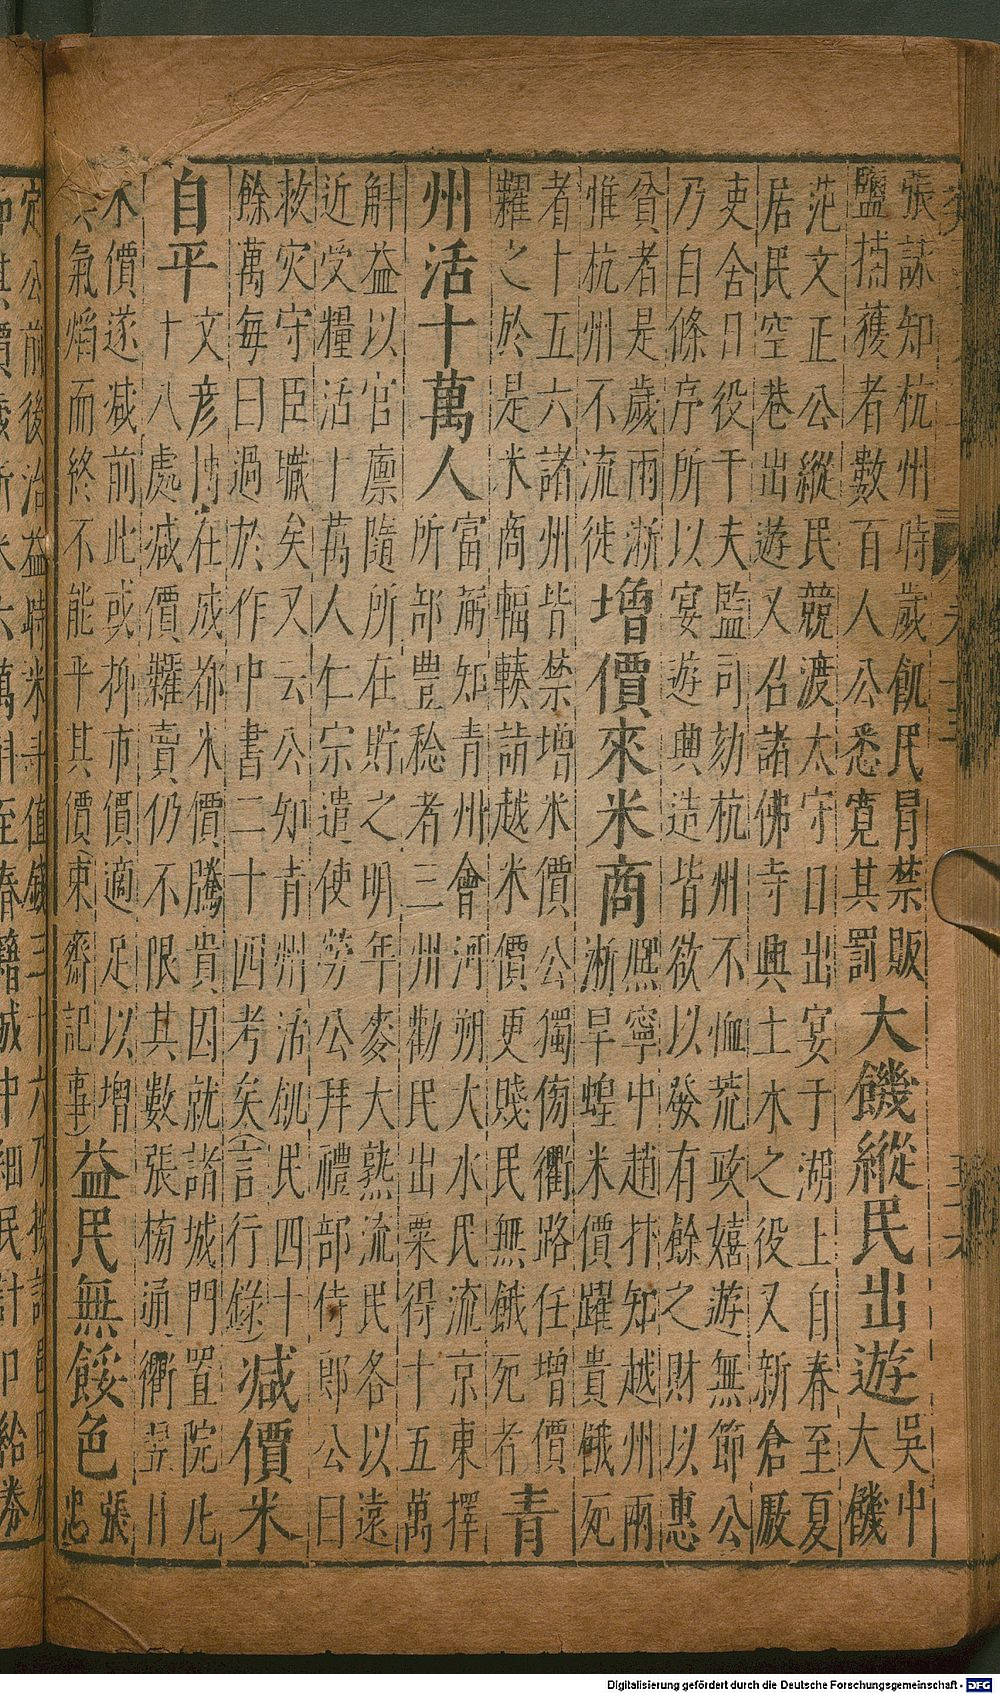 張詠知杭州時歲飢民冒禁販
鹽捕獲者數百人公悉寬其罰
大饑縱民出遊
吳中
大饑
范文正公縱民競渡太守日出宴于湖上自春至夏
居民空巷出遊又召諸佛寺興土木之役又新倉厫
吏舍日役千夫監司劾杭州不恤荒政嬉遊無節公
乃自條序所以宴遊興造皆欲以發有餘之財以惠
貧者是歲雨浙
惟杭州不流徙
增價來米商
熈寧中趙抃知越州兩
浙旱蝗米價躍貴餓死
者十五六諸州皆禁增米價公獨傍衢路任增價
糴之於是米商輻輳詣越米價更賤民無餓死者
青
州活十萬人
富弼知青州會河朔大水民流京東擇
所部豐稔者三州勸民出粟得十五萬
斛益以官廪隨所在貯之明年麥大熟流民各以遠
近受糧活十萬人仁宗遣使勞公拜禮部侍郎公曰
救灾守臣職矣又云公知青州活飢民四十
餘萬每曰過於作中書二十四考矣(言行錄)
减價米
自平
文彦博在成都米價騰貴因就諸城門置院凡
十八處减價糶賣仍不限其數張榜通衢翌日
米價遂减前此或抑市價適足以增
其氣熖而終不能平其價(東齋記事)
益民無餒色
張
忠
定公前後治益時米斗值錢三十六乃按諸邑田
其價歲折米六萬斛至春籍城中細民計口給劵
Digitalisierung gefördert durch die Deutsche Forschungsgemeinschaft - DFG